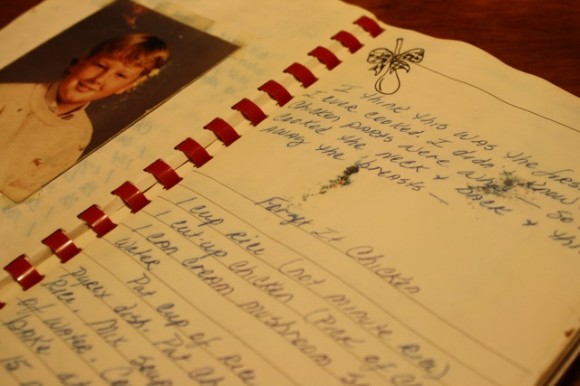 I think this was the first
I ever cooked. I didn't know
chicken parts were
cooked the neck & back & th
away the breasts —
Forget It Chicken
1 cup Rice (not minute Rice)
1 cut-up chicken (Pack of
1 can cream mushroom
Water
Put cup of Rice
Pyrex dish. Put
Rice. Mix soup
of water.
Bake at
15